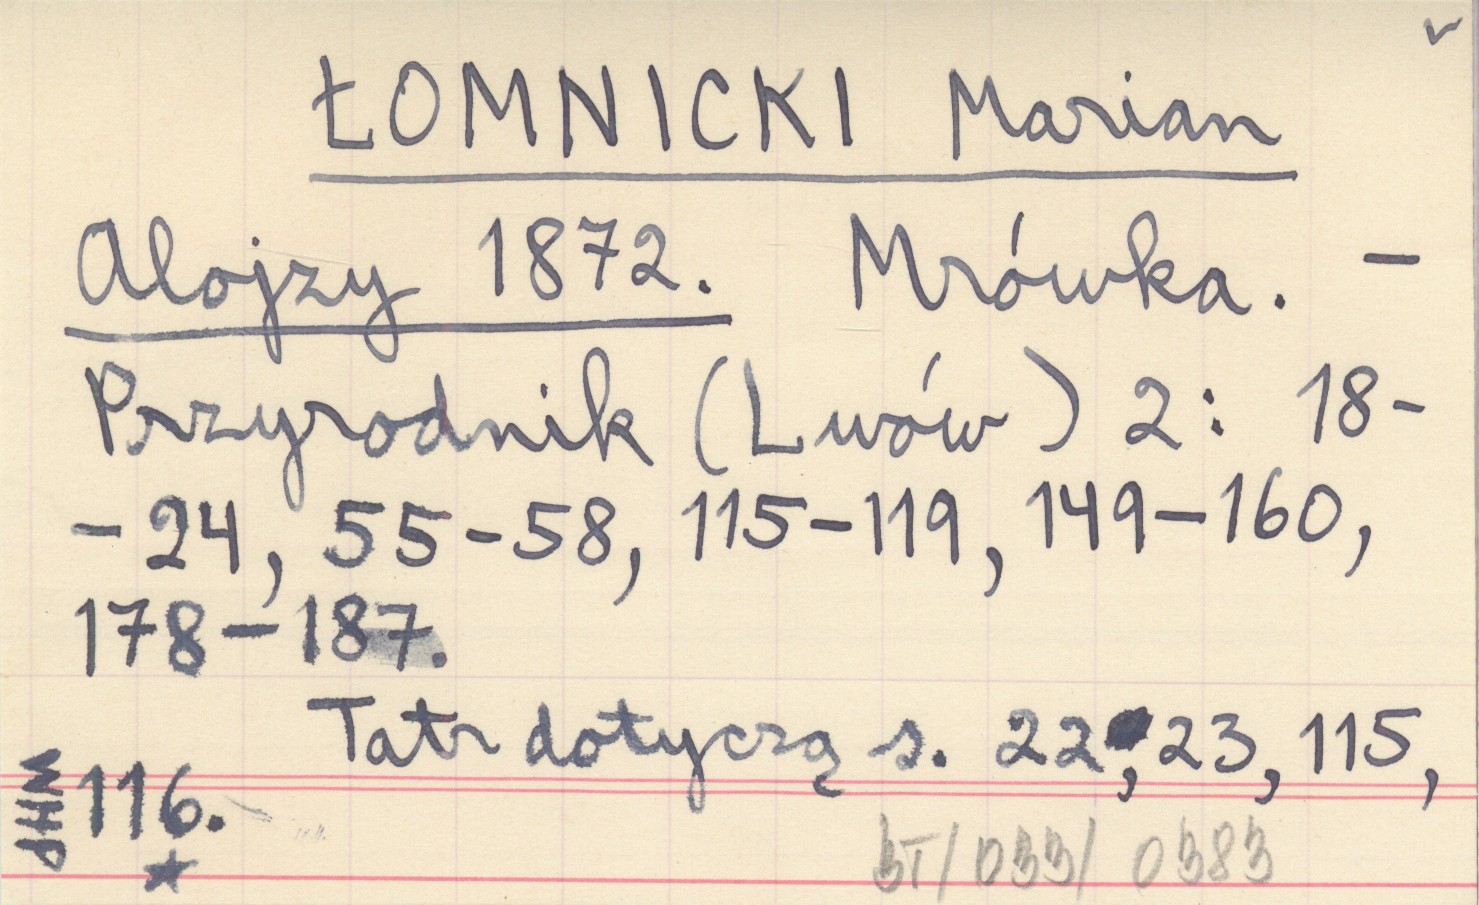 ŁOMNICKI Marian
Alojzy 1872. Mrówka. –
Przyrodnik (Lwów) 2: 18-
-24, 55-58, 115-119, 149-160,
178-187.
Tatr dotyczą s. 22, 23, 115,
116.
WHP
BT/033/0383